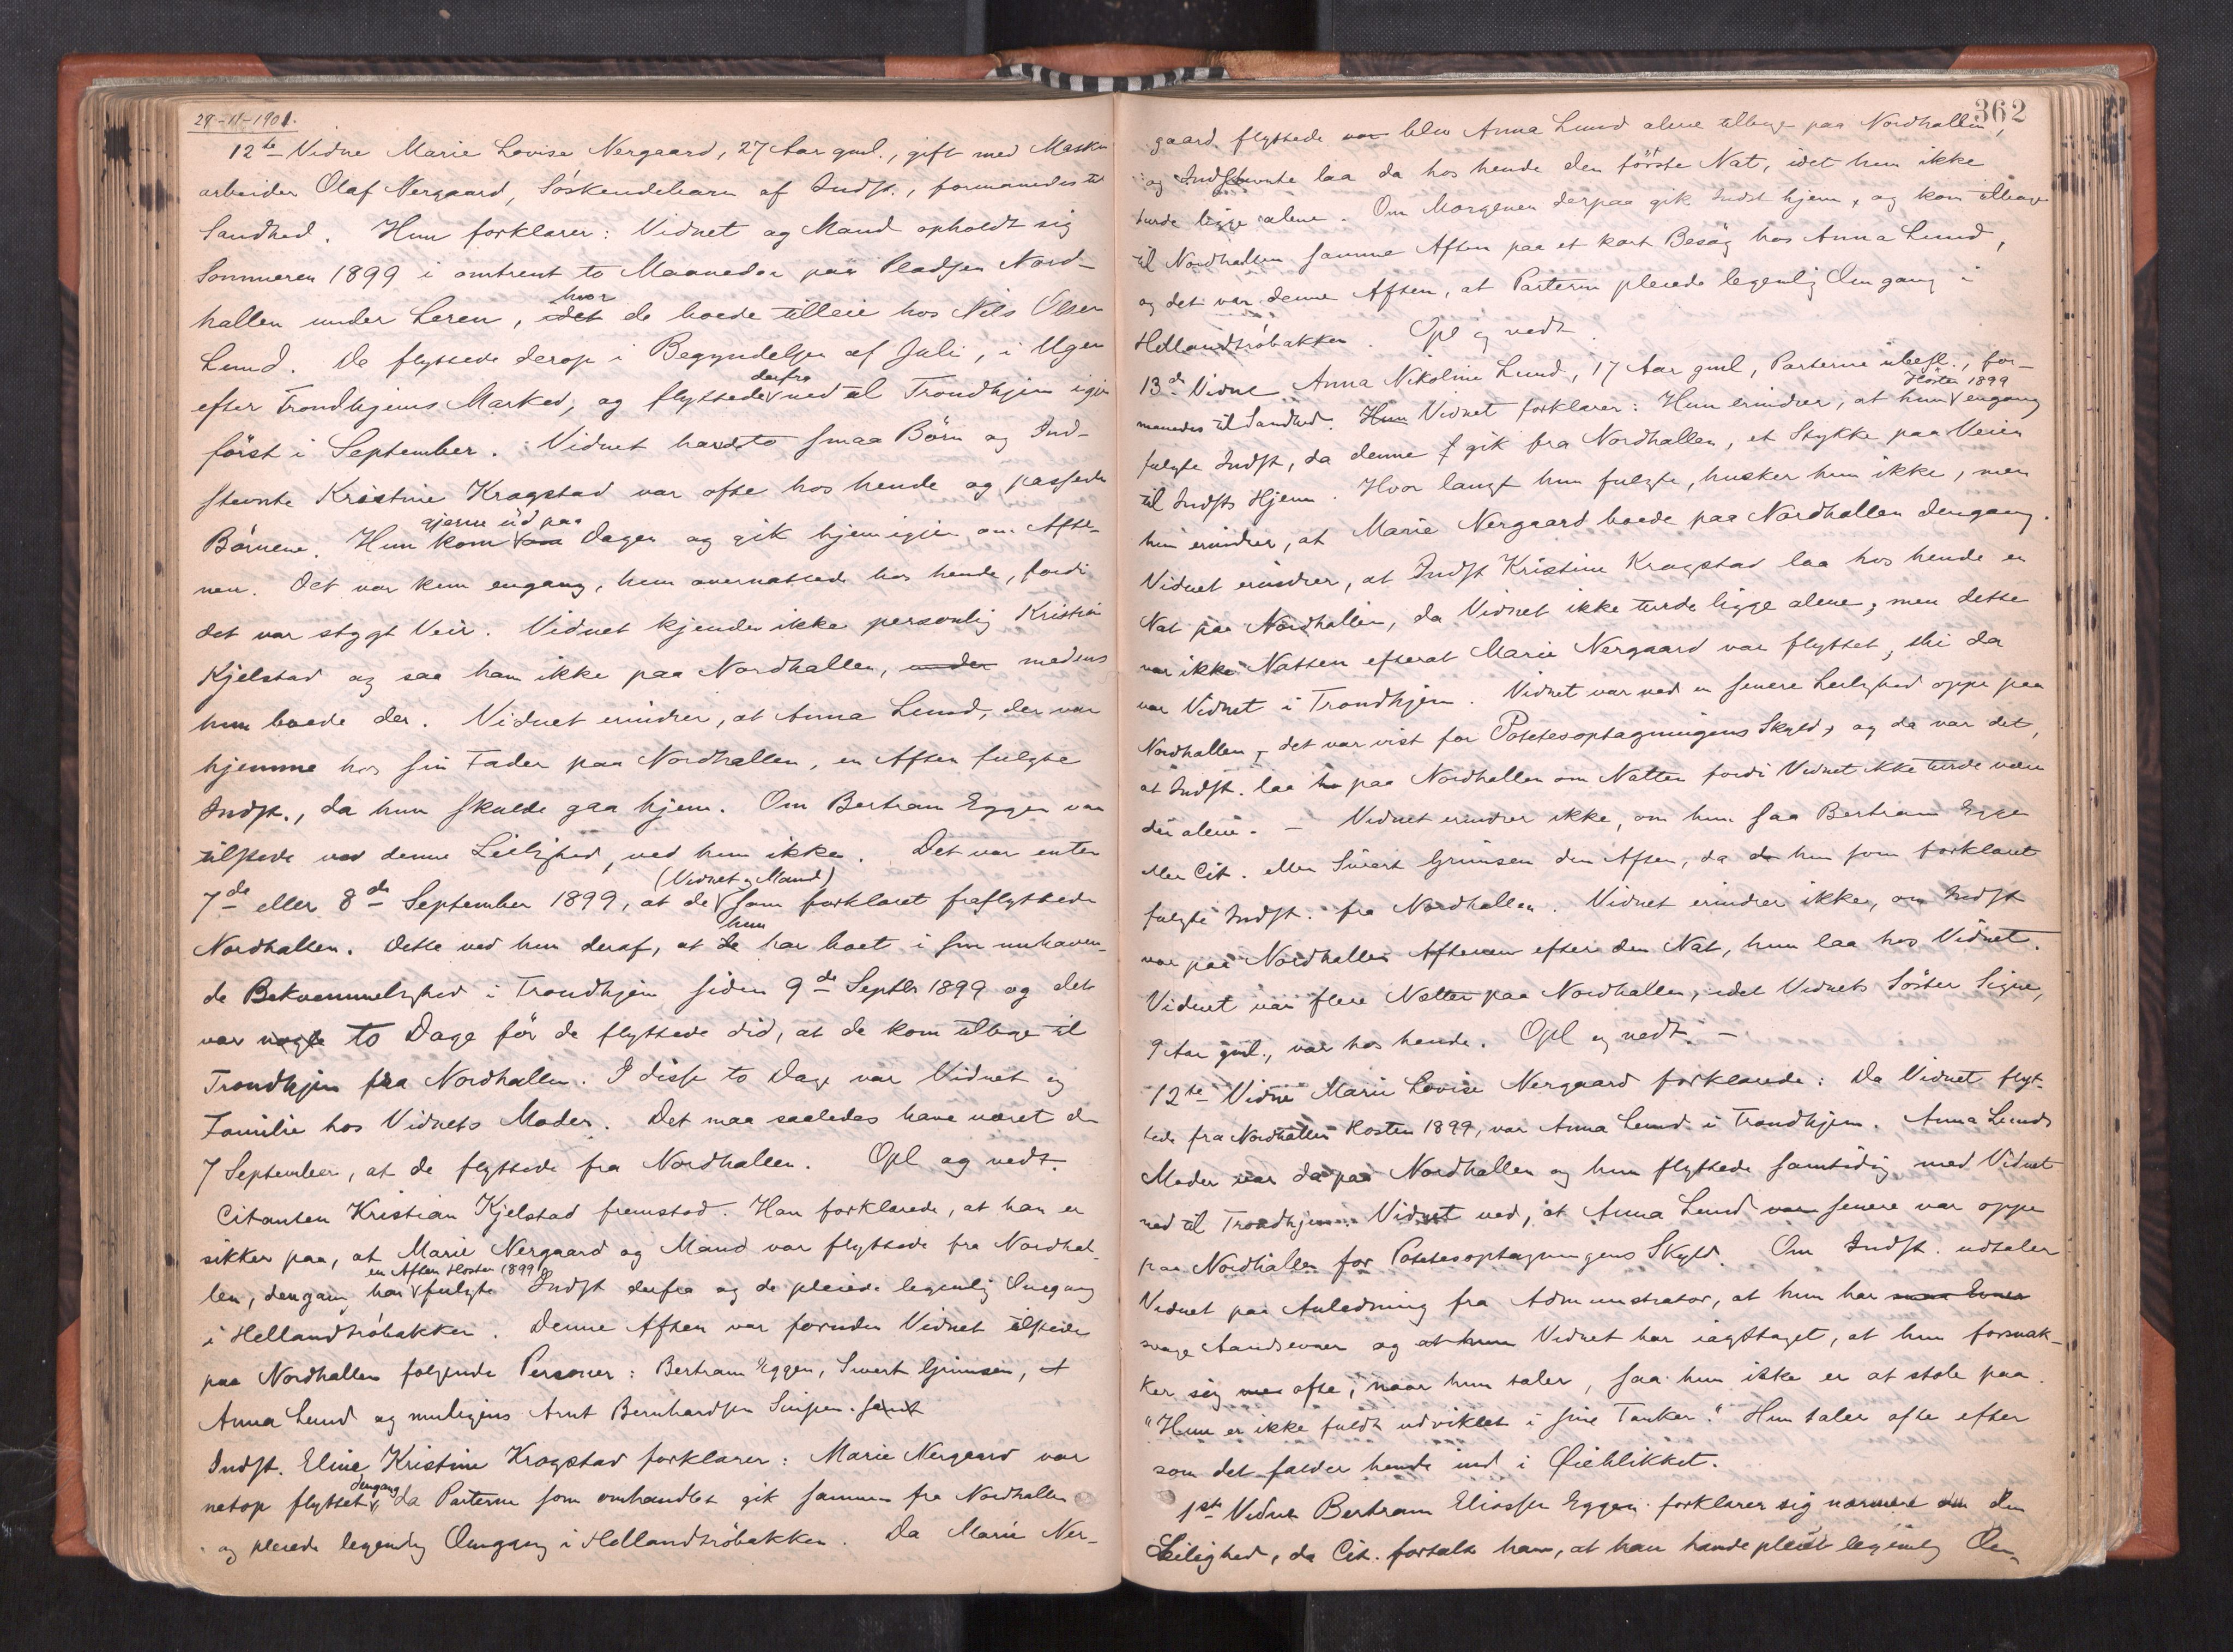 29-11-1901.
12te Vidne Marie Lovise Nergaard, 27 Aar gml., gift med Maskin
arbeider Olaf Nergaard, Söskendebarn af Indst., formanedes til
Sandhed. Hun forklarer: Vidnet og Mand opholdt sig
Sommeren 1899 i omtrent to Maaneder paa Pladsen Nord-
hallen under Leren, idet hvor de boede tilleie hos Nils Olsen
Lund. De flyttede derop i Begyndelsen af Juli, i Ugen
efter Trondhjems Marked, og flyttede derfra ned til Trondhjem igjen
först i September. Vidnet havde to smaa Börn og Ind-
stevnte Kristine Kragstad var ofte hos hende og passede
Börnene. Hun kom gjerne ud paa Dagen og gik hjem igjen om Afte-
nen. Det var kun engang, hun overnattede hos hende, fordi
det var stygt Veir. Vidnet kjender ikke personlig Kristian
Kjelstad og saa ham ikke paa Nordhallen, under medens
hun boede der. Vidnet erindrer, at Anna Lund, der var
hjemme hos sin Fader paa Nordhallen, en Aften fulgte
Indst., da hun skulde gaa hjem. Om Bertram Eggen var
tilstede ved denne Leilighed, ved hun ikke. Det var enten
7de eller 8de September 1899, at de (Vidnet og Mand) som forklaret fraflyttede
Nordhallen. Dette ved hun deraf, at de hun har boet i sin nuhaven-
de Bekvemmelighed i Trondhjem siden 9de Septbr 1899 og det
var nogle to Dage för de flyttede did, at de kom tilbage til
Trondhjem fra Nordhallen. I disse to Dage var Vidnet og
Familie hos Vidnets Moder. Det maa saaledes have været d
7 September, at de flyttede fra Nordhallen. Opl og vedt.
Citanten Kristian Kjelstad fremstod. Han forklarede, at han er
sikker paa, at Marie Nergaard og Mand var flyttede fra Nordhal-
len, dengang han en Aften Hösten 1899 fulgte Indst derfra og de pleiede legemlig Omgang
i Hellandsröbakken. Denne Aften var foruden Vidnet tilstede
paa Nordhallen folgende Personer: Bertram Eggen, Sivert Grimsen,
Anna Lund og muligens Arnt Bernhardsen. samt
Indst. Eline Kristine Kragstad forklarer: Marie Nergaard var
netop flyttet dengang, da Parterne som omhandlet gik sammen fra Nordhallen
og pleiede legemlig Omgang i Hellandsröbakken. Da Marie Ner-
362
gaard flyttede var blev Anna Lund alene tilbage paa Nordhallen,
og Indstevnte laa da hos hende den förste Nat, idet hun ikke
turde ligge alene. Om Morgenen derpaa gik Indst hjem, og kom tilbage
til Nordhallen samme Aften paa et kort Besög hos Anna Lund,
og det var denne Aften, at Parterne pleiede legemlig Omgang i
Hellandsröbakken. Opl og vedt
13de Vidne Anna Nikoline Lund, 17 Aar gml, Parterne ubesl., for-
manedes til Sandhed. Hun Vidnet forklarer: Hun erindrer, at hun Hösten 1899 engang
fulgte Indst, da denne gik fra Nordhallen, et Stykke paa Veien
til Indsts Hjem. Hvor langt hun fulgte, husker hun ikke, men
hun erindrer, at Marie Nergaard boede paa Nordhallen dengang.
Vidnet erindrer, at Indst Kristine Kragstad laa hos hende en
Nat paa Nordhallen, da Vidnet ikke turde ligge alene, men dette
var ikke Natten efterat Marie Nergaard var flyttet, thi da
var Vidnet i Trondhjem. Vidnet var ved en senere Leilighed oppe paa
Nordhallen, det var vist for Potetesoptagningens Skyld, og da var det,
at Indst. laa paa Nordhallen om Natten fordi Vidnet ikke turde være
der alene. – Vidnet erindrer ikke, om hun saa Bertram Eggen
eller Cit. eller Sivert Grimsen den Aften, da hun som forklaret
fulgte Indst. fra Nordhallen. Vidnet erindrer ikke, om Indst
var paa Nordhallen Aftenen efter den Nat, hun laa hos Vidnet.
Vidnet var flere Nætter paa Nordhallen, idet Vidnets Söster Signe,
9 Aar gml., var hos hende. Opl og vedt. –
12te Vidne Marie Lovise Nergaard forklarede: Da Vidnet flyt-
tede fra Nordhallen Hosten 1899, var Anna Lund i Trondhjem. Anna Lunds
Moder var da paa Nordhallen og hun flyttede samtidig med Vidnet
ned til Trondhjem. Vidnet ved, at Anna Lund var senere var oppe
paa Nordhallen for Potetesoptagningens Skyld. Om Indst. udtaler
Vidnet paa Anledning fra Administrator, at hun har
svage Aandsevner og at hun Vidnet har iagttaget, at hun forsnak-
ker sig ofte, naar hun taler, saa hun ikke er at stole paa.
"Hun er ikke fuldt udviklet i sine Tanker." Hun taler ofte efter
som det falder hende ind i Øieblikket.
1ste Vidne Bertram Eliassen Eggen forklarer sig nærmere om den
Leilighed, da Cit. fortalte ham, at han havde pleiet legemlig Om-